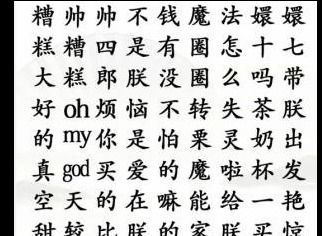 糟帅帅不钱魔法嬛嬛
糕糟四是有圈怎十七
大糕郎朕没圈么吗带
好oh烦恼不转失茶朕
的my你是怕栗灵奶出
真god买爱的魔啦杯发
空天的在嘛能给一艳
甜较比朕的家朕买惊